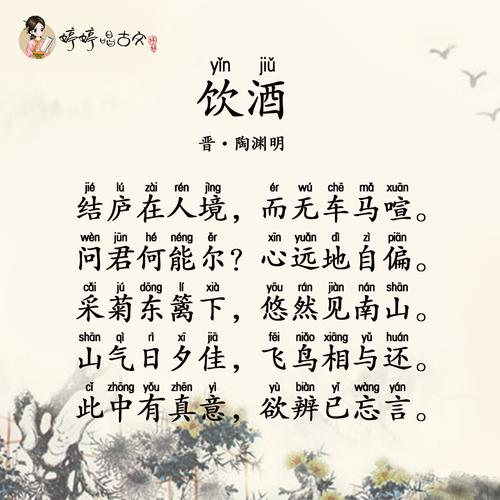 婷婷唱古文
yǐn jiǔ
饮酒
晋·陶渊明
jié lú zài rén jìng ér wú chē mǎ xuān
结庐在人境，而无车马喧。
wèn jūn hé néng ěr xīn yuǎn dì zì piān
问君何能尔？心远地自偏。
cǎi jú dōng lí xià yōu rán jiàn nán shān
采菊东篱下，悠然见南山。
shān qì rì xī jiā fēi niǎo xiāng yǔ huán
山气日夕佳，飞鸟相与还。
cǐ zhōng yǒu zhēn yì yù biàn yǐ wàng yán
此中有真意，欲辨已忘言。